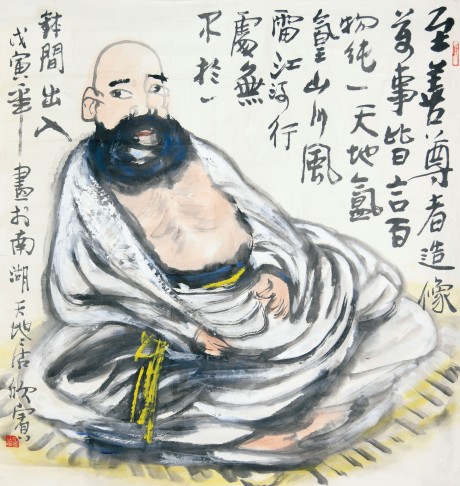 至善尊者造像
萬事皆言百
物純一天地氤
氳山川風
雷江河行
處無
不於一
鉢間出入
戊寅年畫於南湖天地